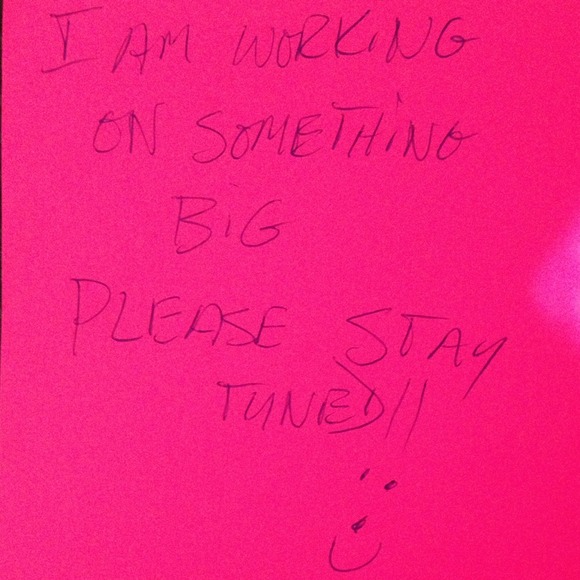 I AM WORKiNG
ON SOMETHiNG
BiG
PLEASE STAY
TUNED!!